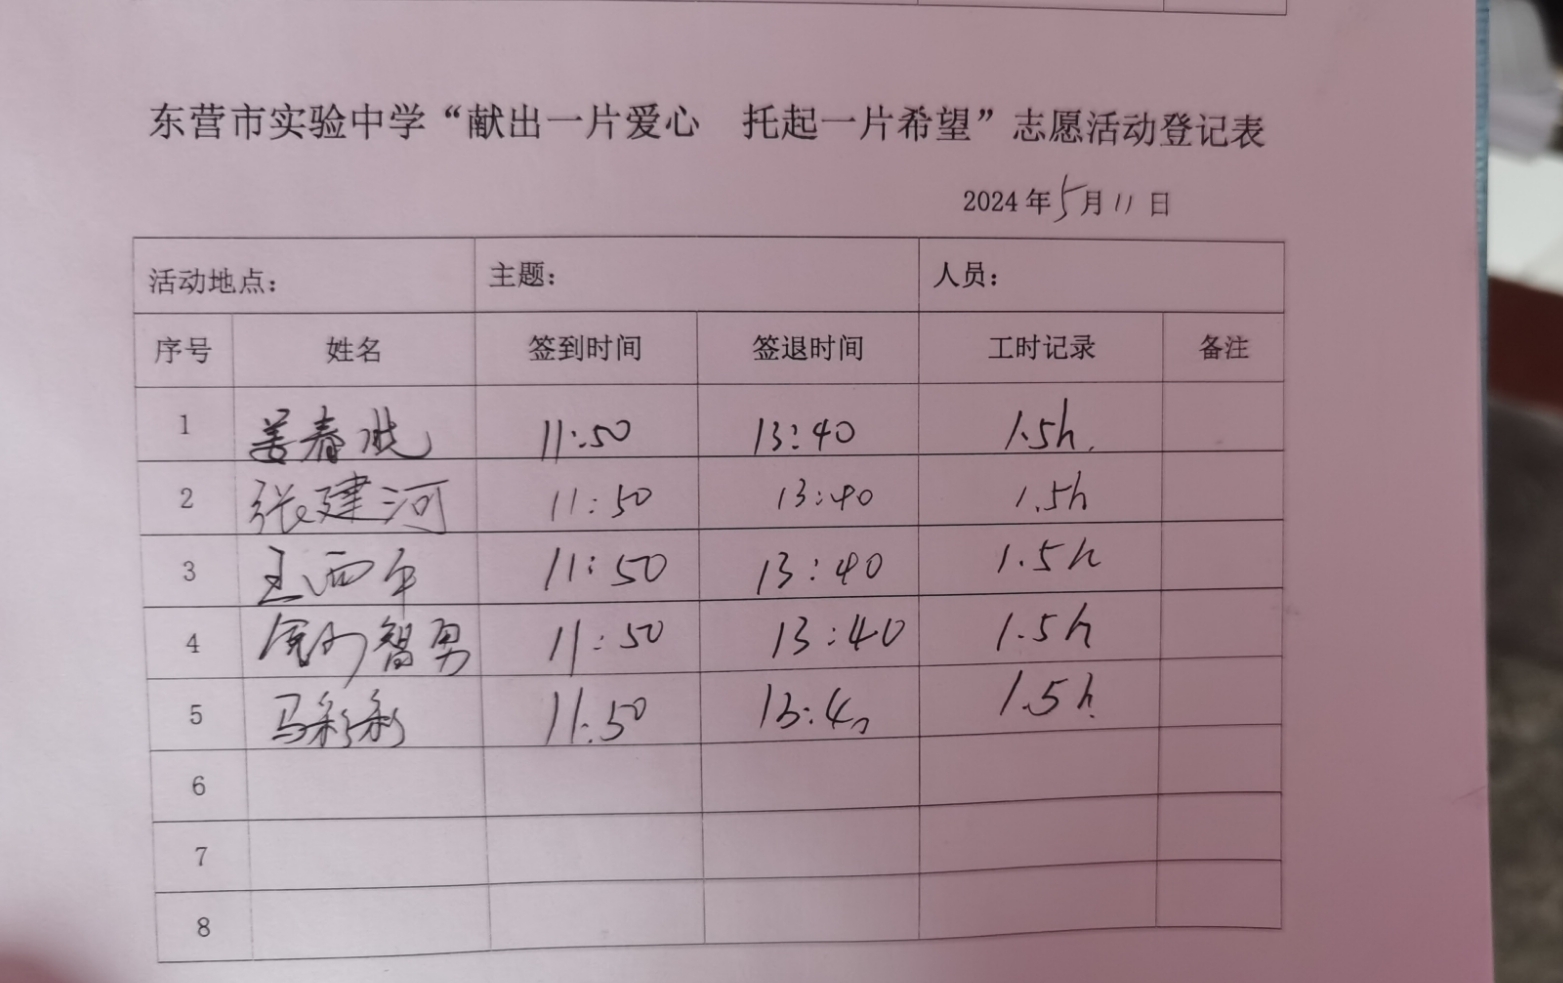 东营市实验中学“献出一片爱心 托起一片希望”志愿活动登记表
2024年5月11日
活动地点： 主题： 人员：
序号 姓名 签到时间 签退时间 工时记录 备注
1 姜春 11:50 13:40 1.5h.
2 张建河 11:50 13:40 1.5h
3 王西年 11:50 13:40 1.5h
4 智勇 11:50 13:40 1.5h
5 马彩彩 11:50 13:40 1.5h
6
7
8